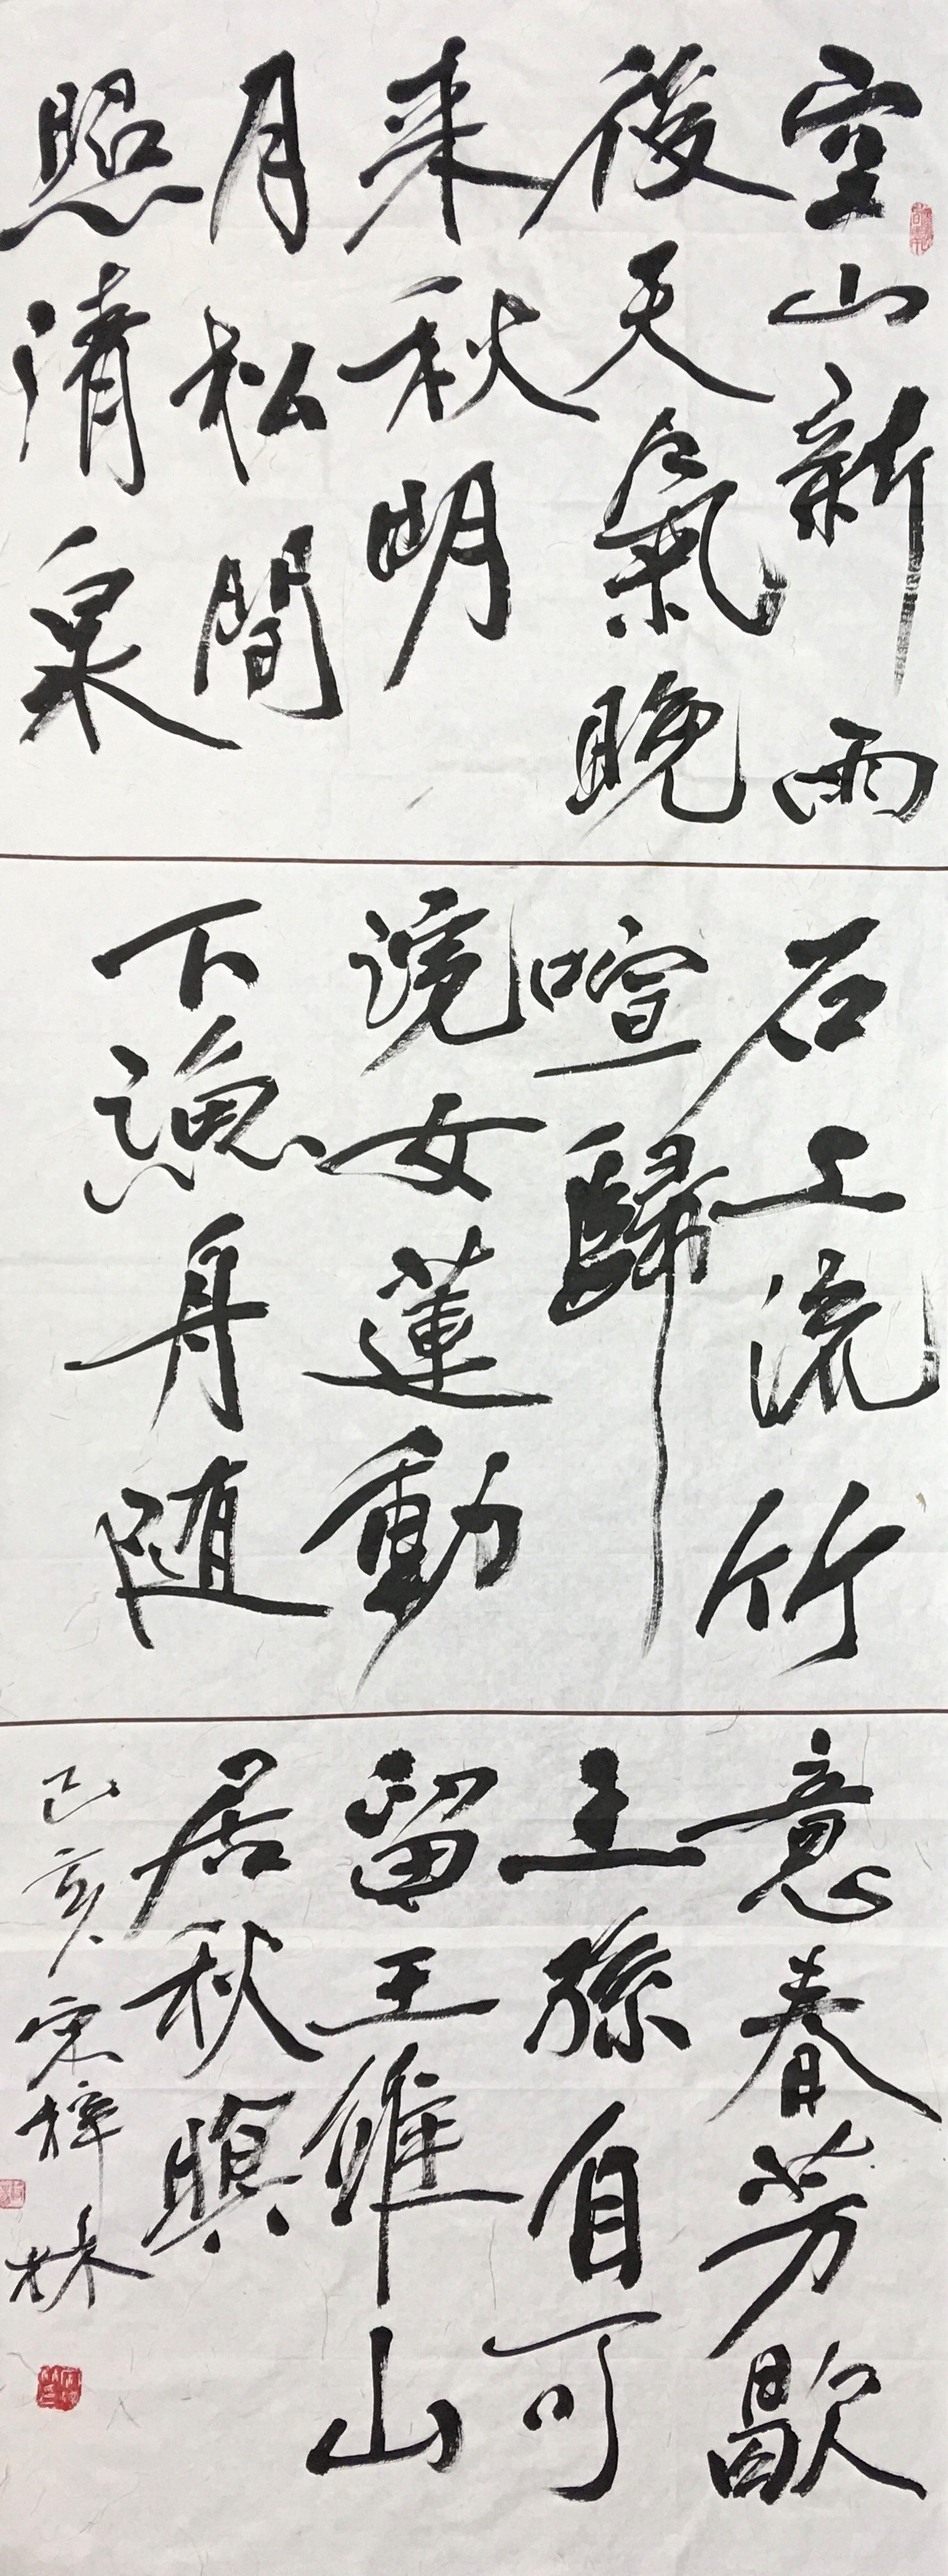 空山新雨
後天氣晚
来秋明
月松間
照清泉
石上流竹
喧歸
浣女蓮動
下漁舟随
意春芳歇
王孫自可
留王維山
居秋暝
己亥宋梓林